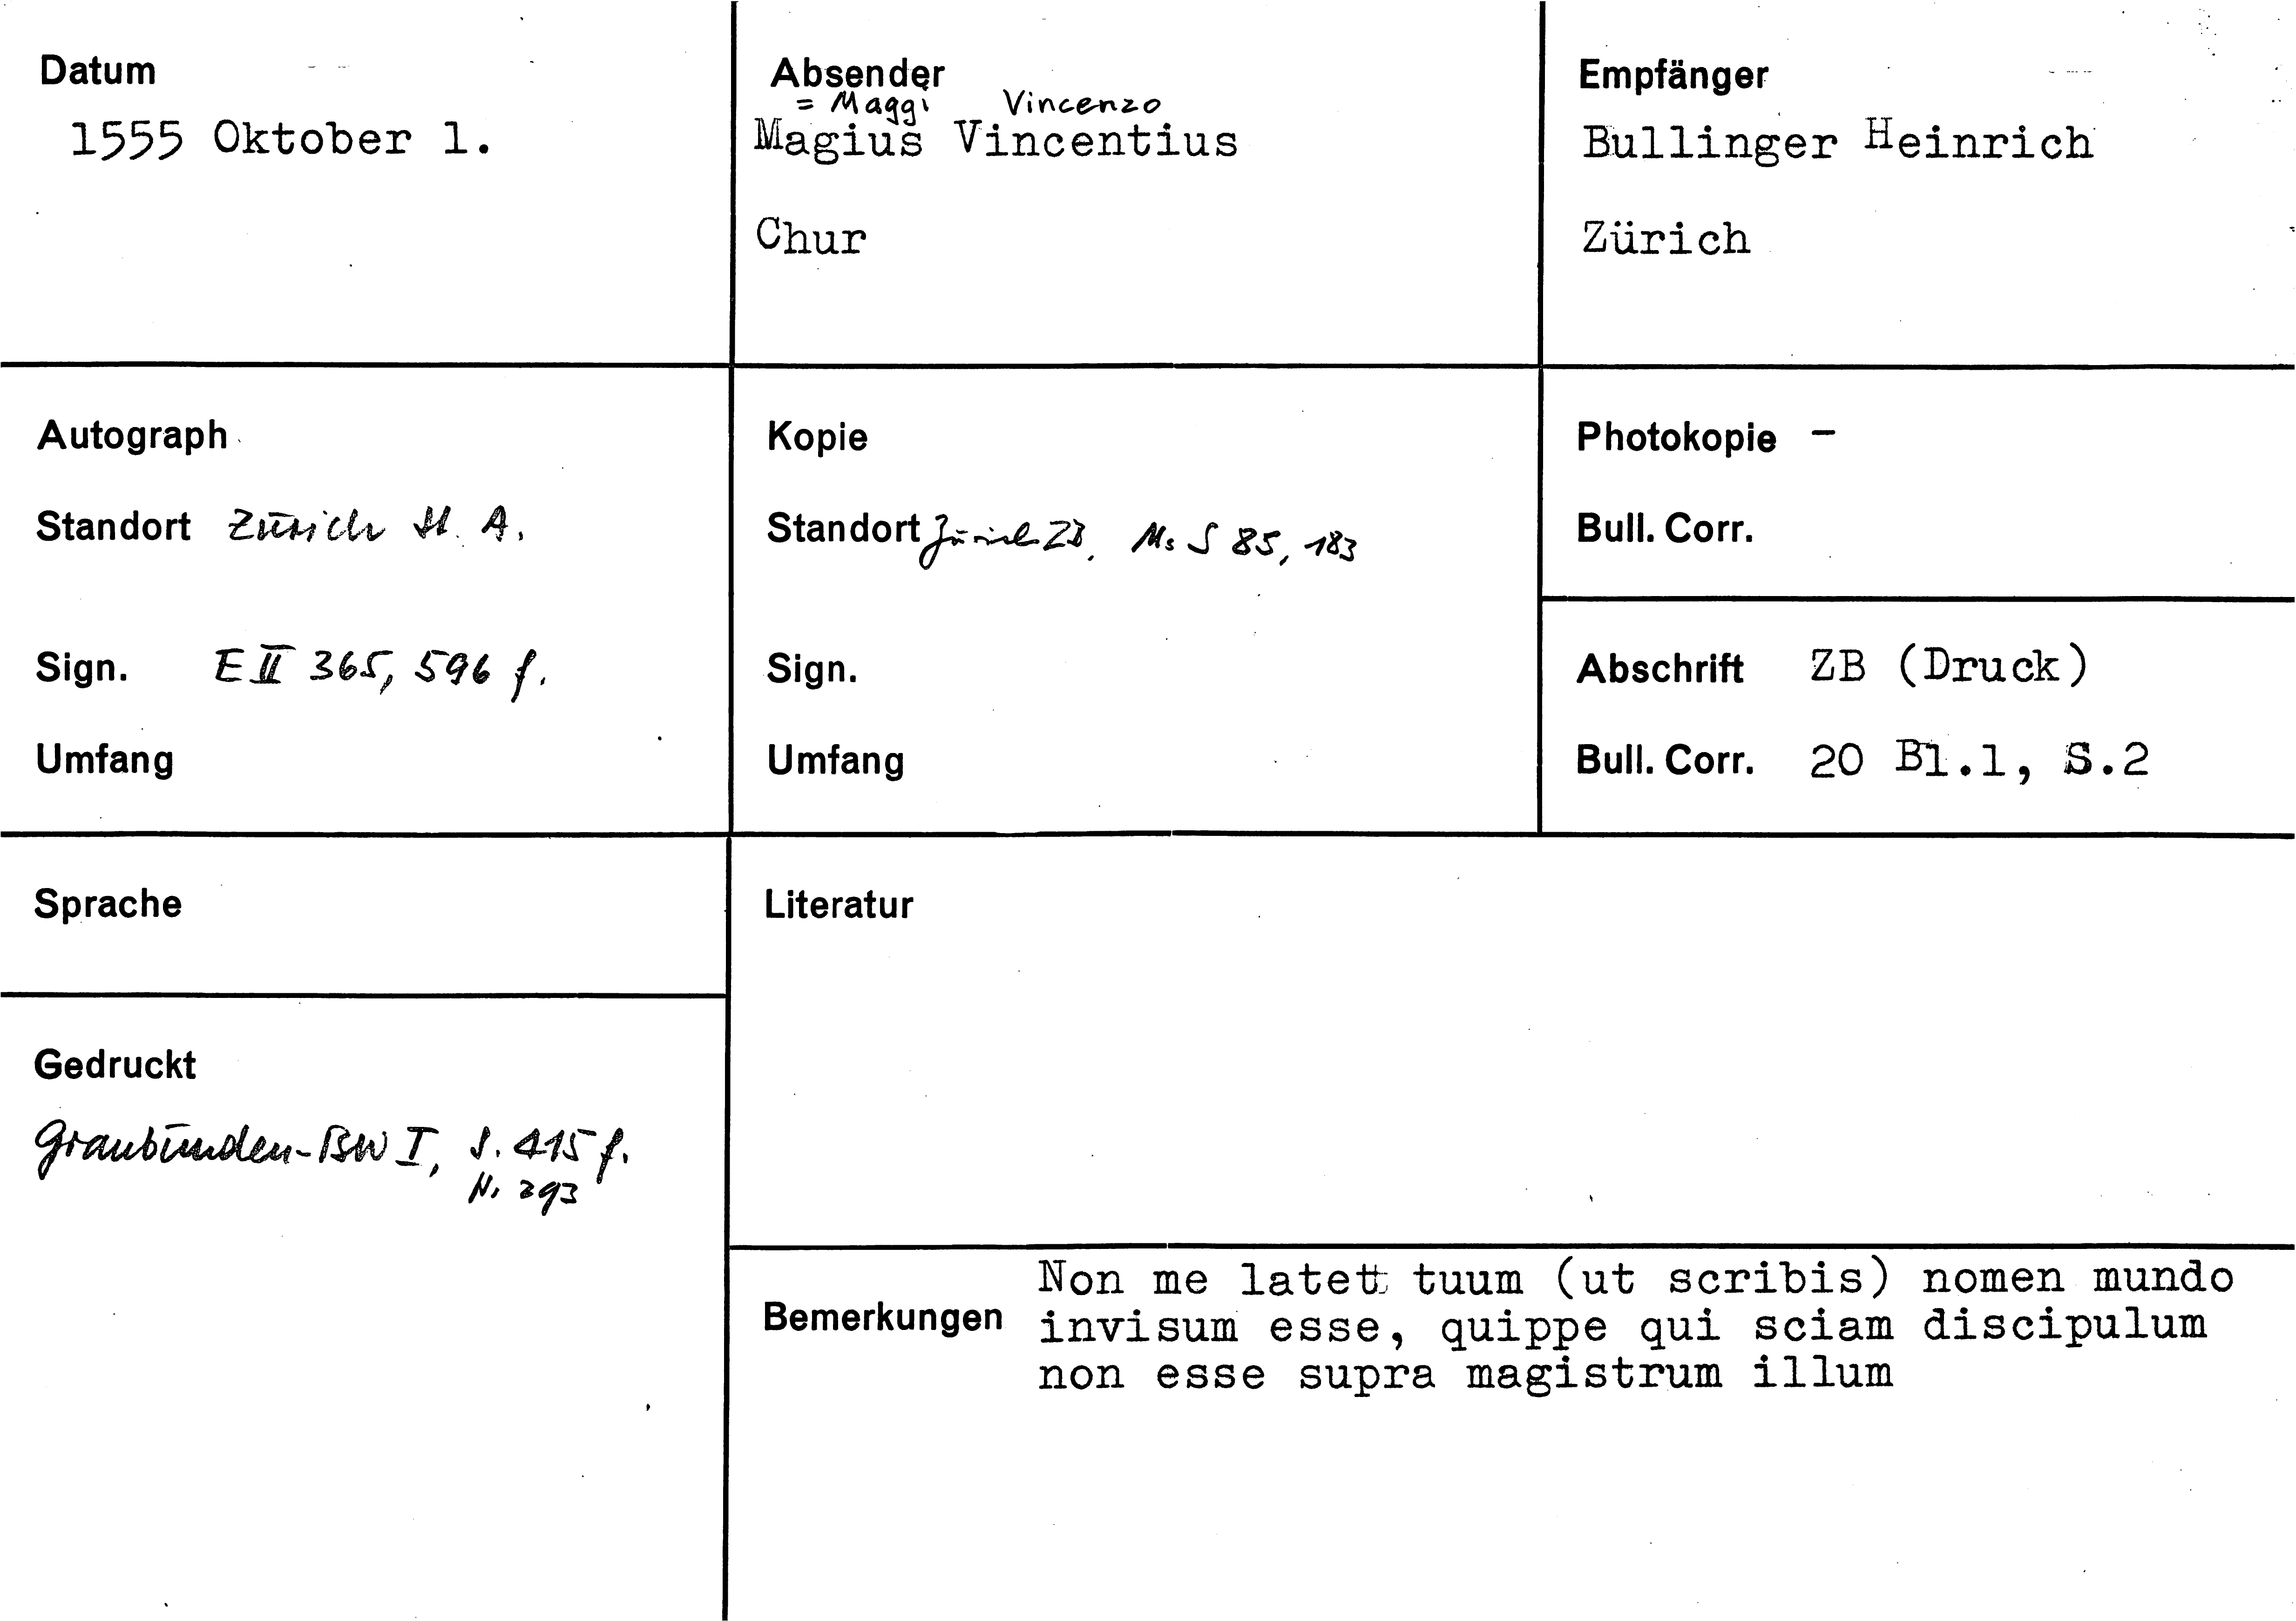 Datum
1555 Oktober 1.
Absender
= Maggi Vincenzo
Magius Vincentius
Chur
Empfänger
Bullinger Heinrich
Zürich
Autograph
Standort Zürich St. A.
Sign. E II 365, 596 f.
Umfang
Kopie
Standort Zürich ZB, Ms S 85, 183
Sign.
Umfang
Photokopie -
Bull. Corr.
Abschrift ZB (Druck)
Bull. Corr. 20 Bl.1, S.2
Sprache
Gedruckt
Graubünden-BW I, S. 415 f.
Nr 293
Literatur
Bemerkungen
Non me latet tuum (ut scribis) nomen mundo
invisum esse, quippe qui sciam discipulum
non esse supra magistrum illum